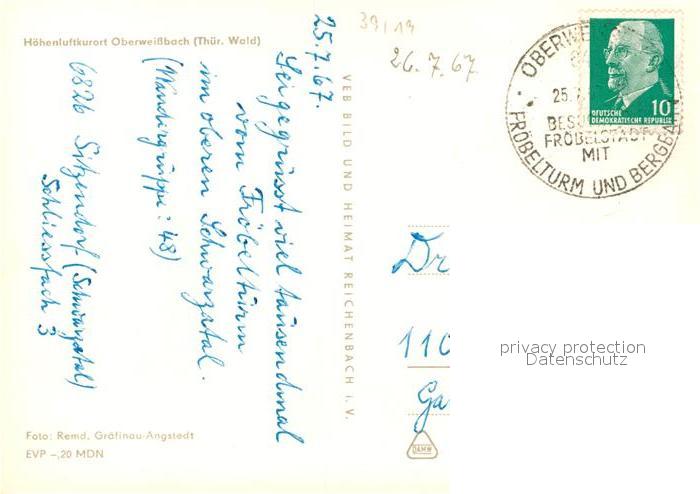 Höhenluftkurort Oberweißbach (Thür. Wald)
25.7.67.
Sei gegrüsst viel tausendmal
vom Fröbelturm
im oberen Schwarzatal.
(Wandergruppe: 48)
6826 Sitzendorf (Schwarzatal)
Schliessfach 3
Foto: Remd, Gräfinau-Angstedt
EVP -,20 MDN
VEB BILD UND HEIMAT REICHENBACH i. V.
39/19
26.7.67.
OBERWE
25.7
BES
FRÖBELSTADT
MIT
FRÖBELTURM UND BERGBA
10
DEUTSCHE
DEMOKRATISCHE REPUBLIK
Dr
110
Ga
DAMW
privacy protection
Datenschutz